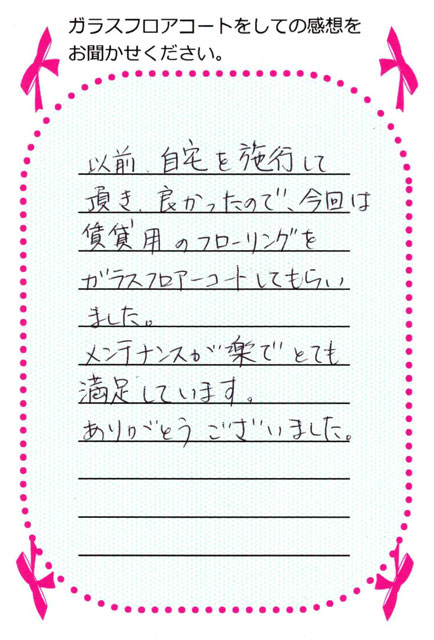 ガラスフロアコートをしての感想を
お聞かせください。
以前、自宅を施行して
頂き、良かったので、今回は
賃貸用のフローリングを
ガラスフロアーコートしてもらい
ました。
メンテナンスが楽でとても
満足しています。
ありがとうございました。